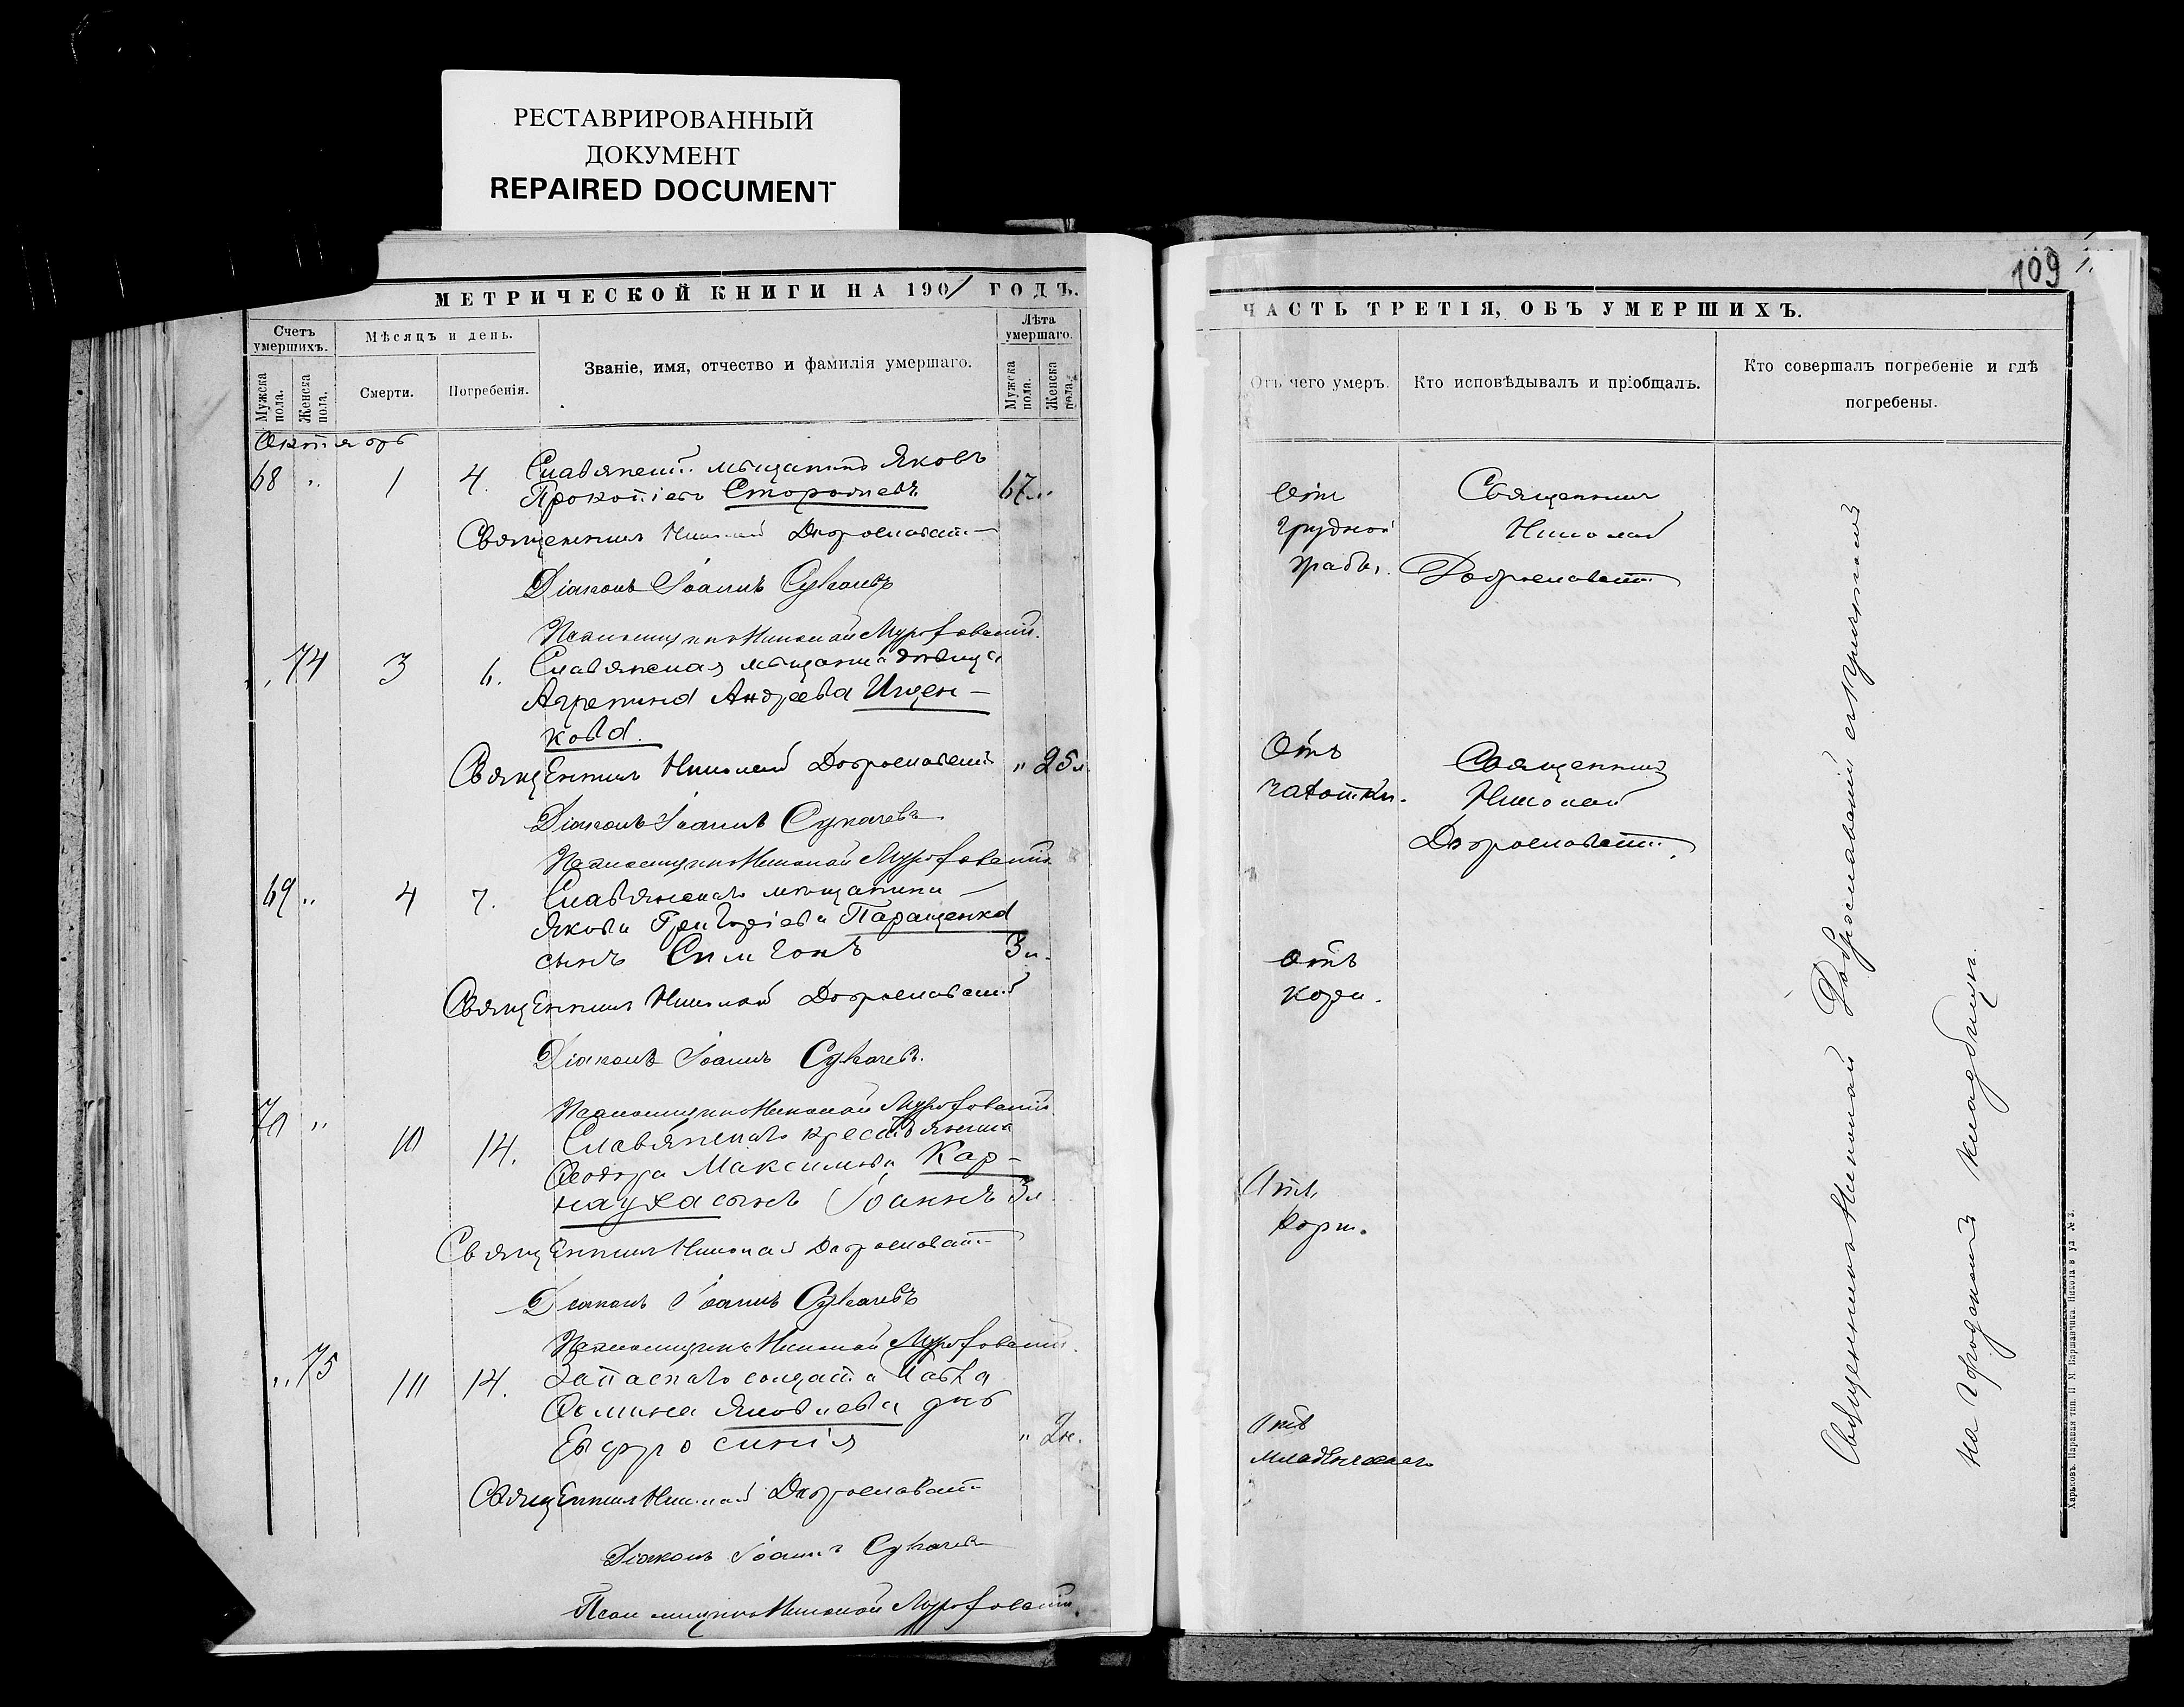 РЕСТАВРИРОВАННЫЙ
ДОКУМЕНТ
REPAIRED DOCUMENT
МЕТРИЧЕСКОЙ КНИГИ НА 1901 ГОДЪ.
Счетъ умершихъ.
Мужска пола.
Женска пола.
Мѣсяцъ и день.
Смерти.
Погребенія.
Званіе, имя, отчество и фамилія умершаго.
Лѣта умершаго.
Мужска пола.
Женска пола.
Октябрь
68 " 1 4. Славянскій мѣщанинъ Яковъ
Прокопіевъ Сторожевъ 67 "
Священникъ Николай Доброславскій
Діаконъ Іоаннъ Сукачевъ
Псаломщикъ Николай
" 74 3 6. Славянская мѣщанка дѣвица
Агрепина Андреева Ищен-
кова.
Священникъ Николай Доброславскій " 25 л.
Діаконъ Іоаннъ Сукачевъ
Псаломщикъ Николай
69 " 4 7. Славянскаго мѣщанина
Якова Григоріева Паращенка
сынъ Симеонъ 3 л.
Священникъ Николай Доброславскій
Діаконъ Іоаннъ Сукачевъ.
Псаломщикъ Николай
70 " 10 14. Славянскаго крестьянина
Ѳеодора Максимова Кар-
науха сынъ Іоаннъ 3 л.
Священникъ Николай Доброславскій
Діаконъ Іоаннъ Сукачевъ
Псаломщикъ Николай
" 75 14. Запаснаго солдата Павла
Ѳомина Яковлева дчь
Евфросинія " 2 н.
Священникъ Николай Доброславскій
Діаконъ Іоаннъ Сукачевъ
Псаломщикъ Николай
109
ЧАСТЬ ТРЕТІЯ, ОБЪ УМЕРШИХЪ.
Отъ чего умеръ.
Кто исповѣдывалъ и пріобщалъ.
Кто совершалъ погребеніе и гдѣ
погребены.
Отъ
грудной
жабы.
Священникъ
Николай
Доброславскій
Отъ
чахотки.
Священникъ
Николай
Доброславскій.
Отъ
кори.
Отъ
кори.
Отъ
младенческаго
Священникъ Николай Доброславскій
на городскомъ кладбищѣ.